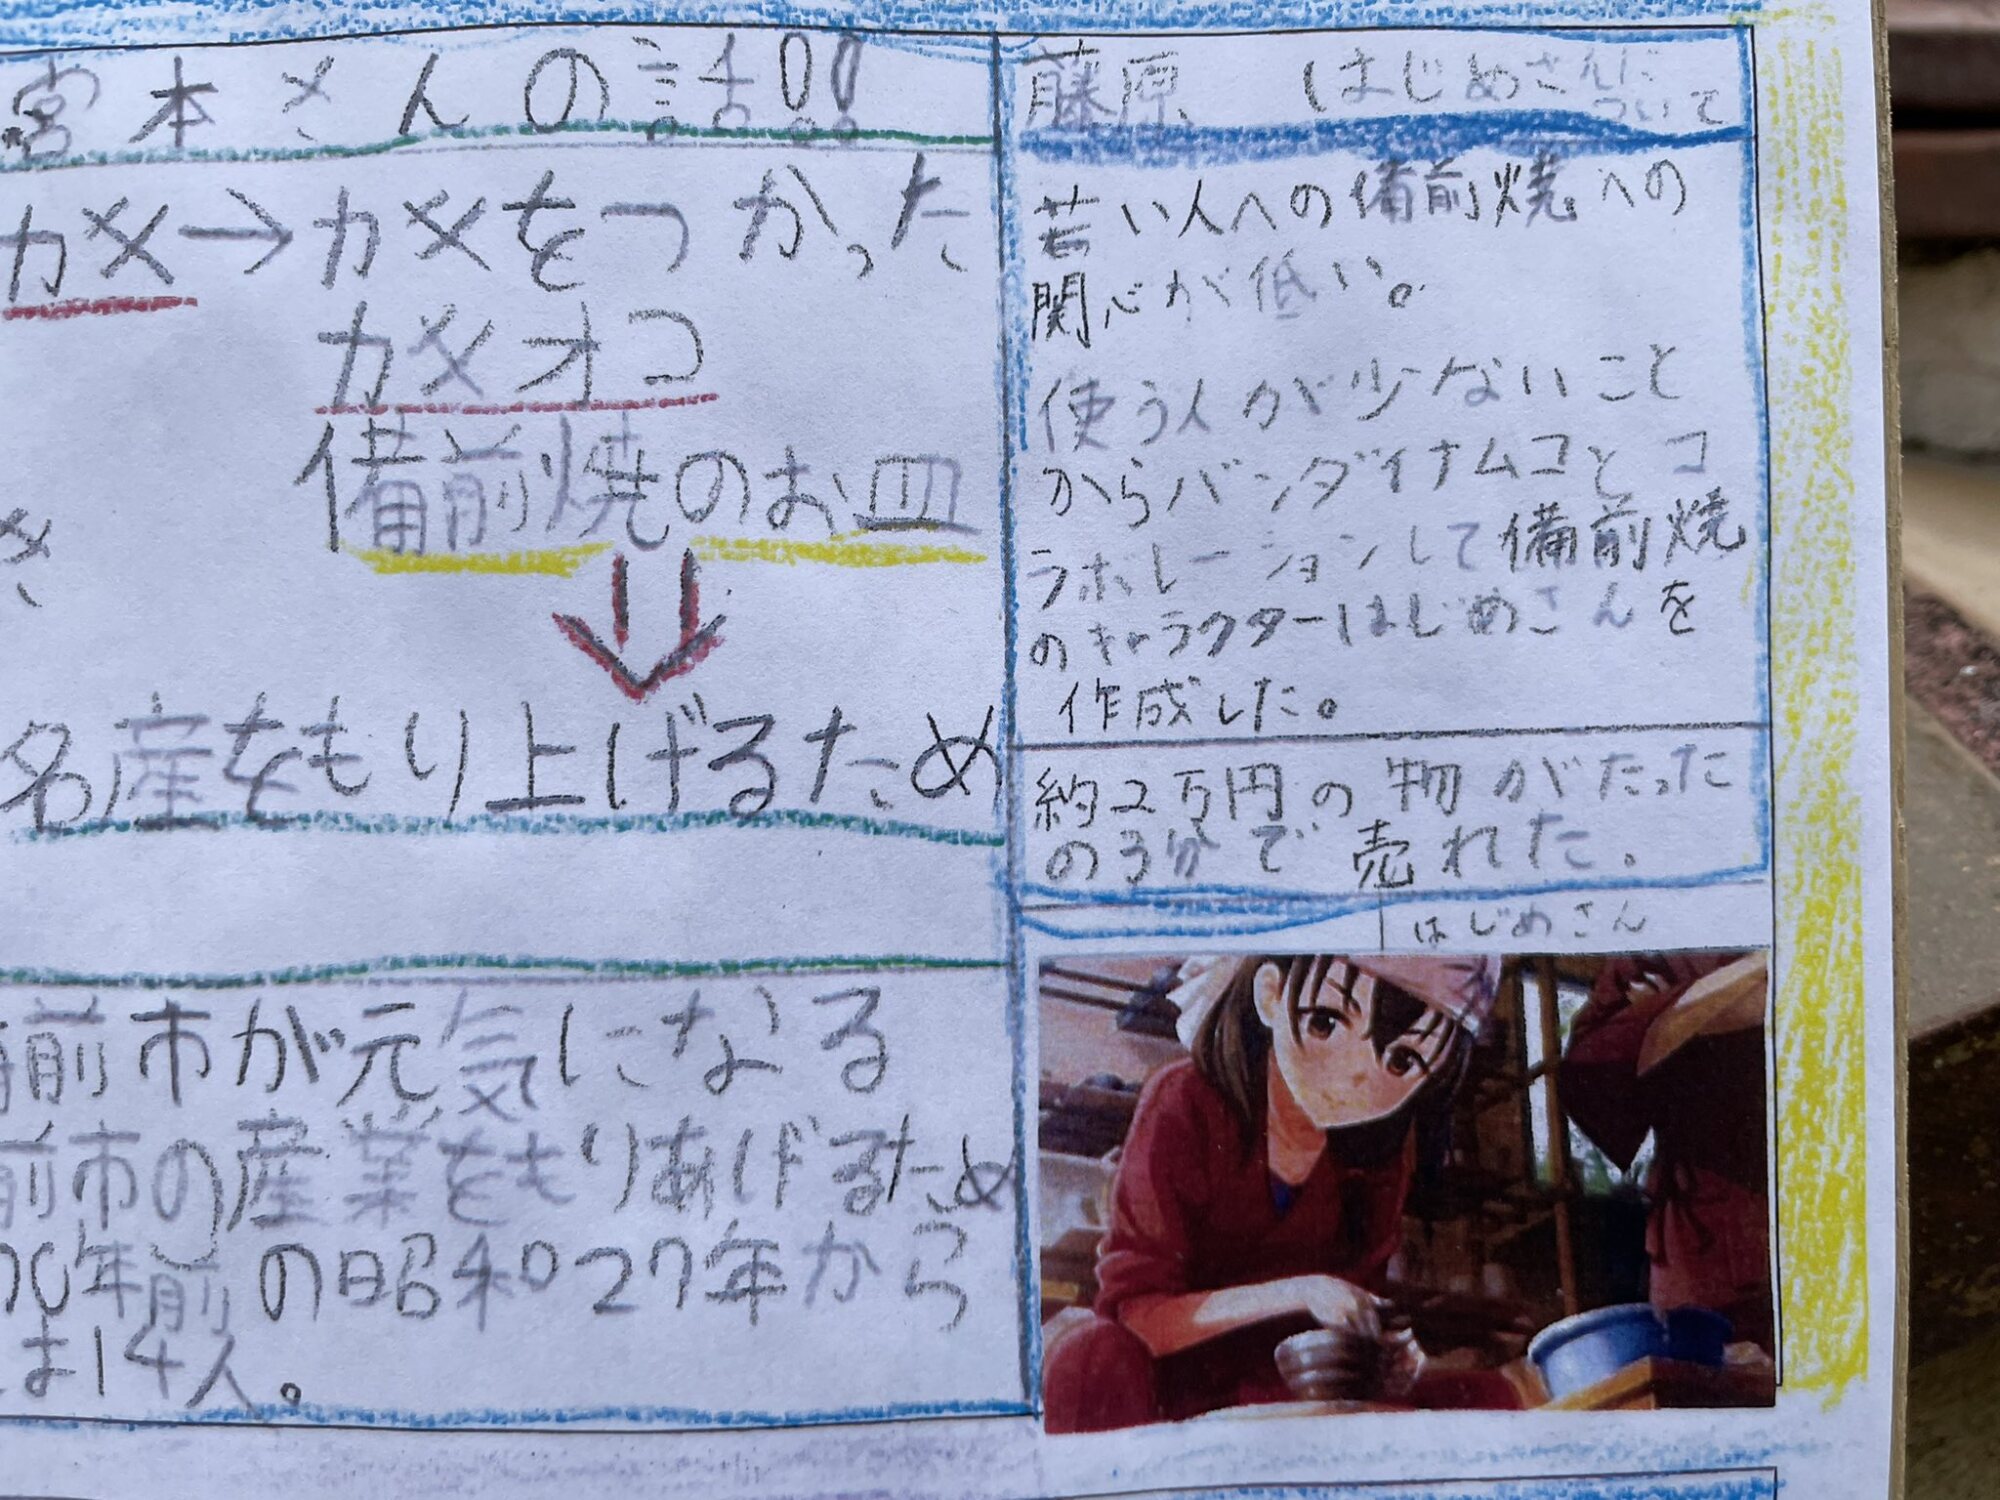 宮本さんの話!!
カメ→カメをつかった
カメオコ
備前焼のお皿
き
名産をもり上げるため
前市が元気になる
前市の産業をもりあげるため
0年前の昭和27年から
は14人。
藤原 はじめさんに
ついて
若い人への備前焼への
関心が低い。
使う人が少ないこと
からバンダイナムコとコ
ラボレーションして備前焼
のキャラクターはじめさんを
作成した。
約2万円の物がたった
の3分で売れた。
はじめさん